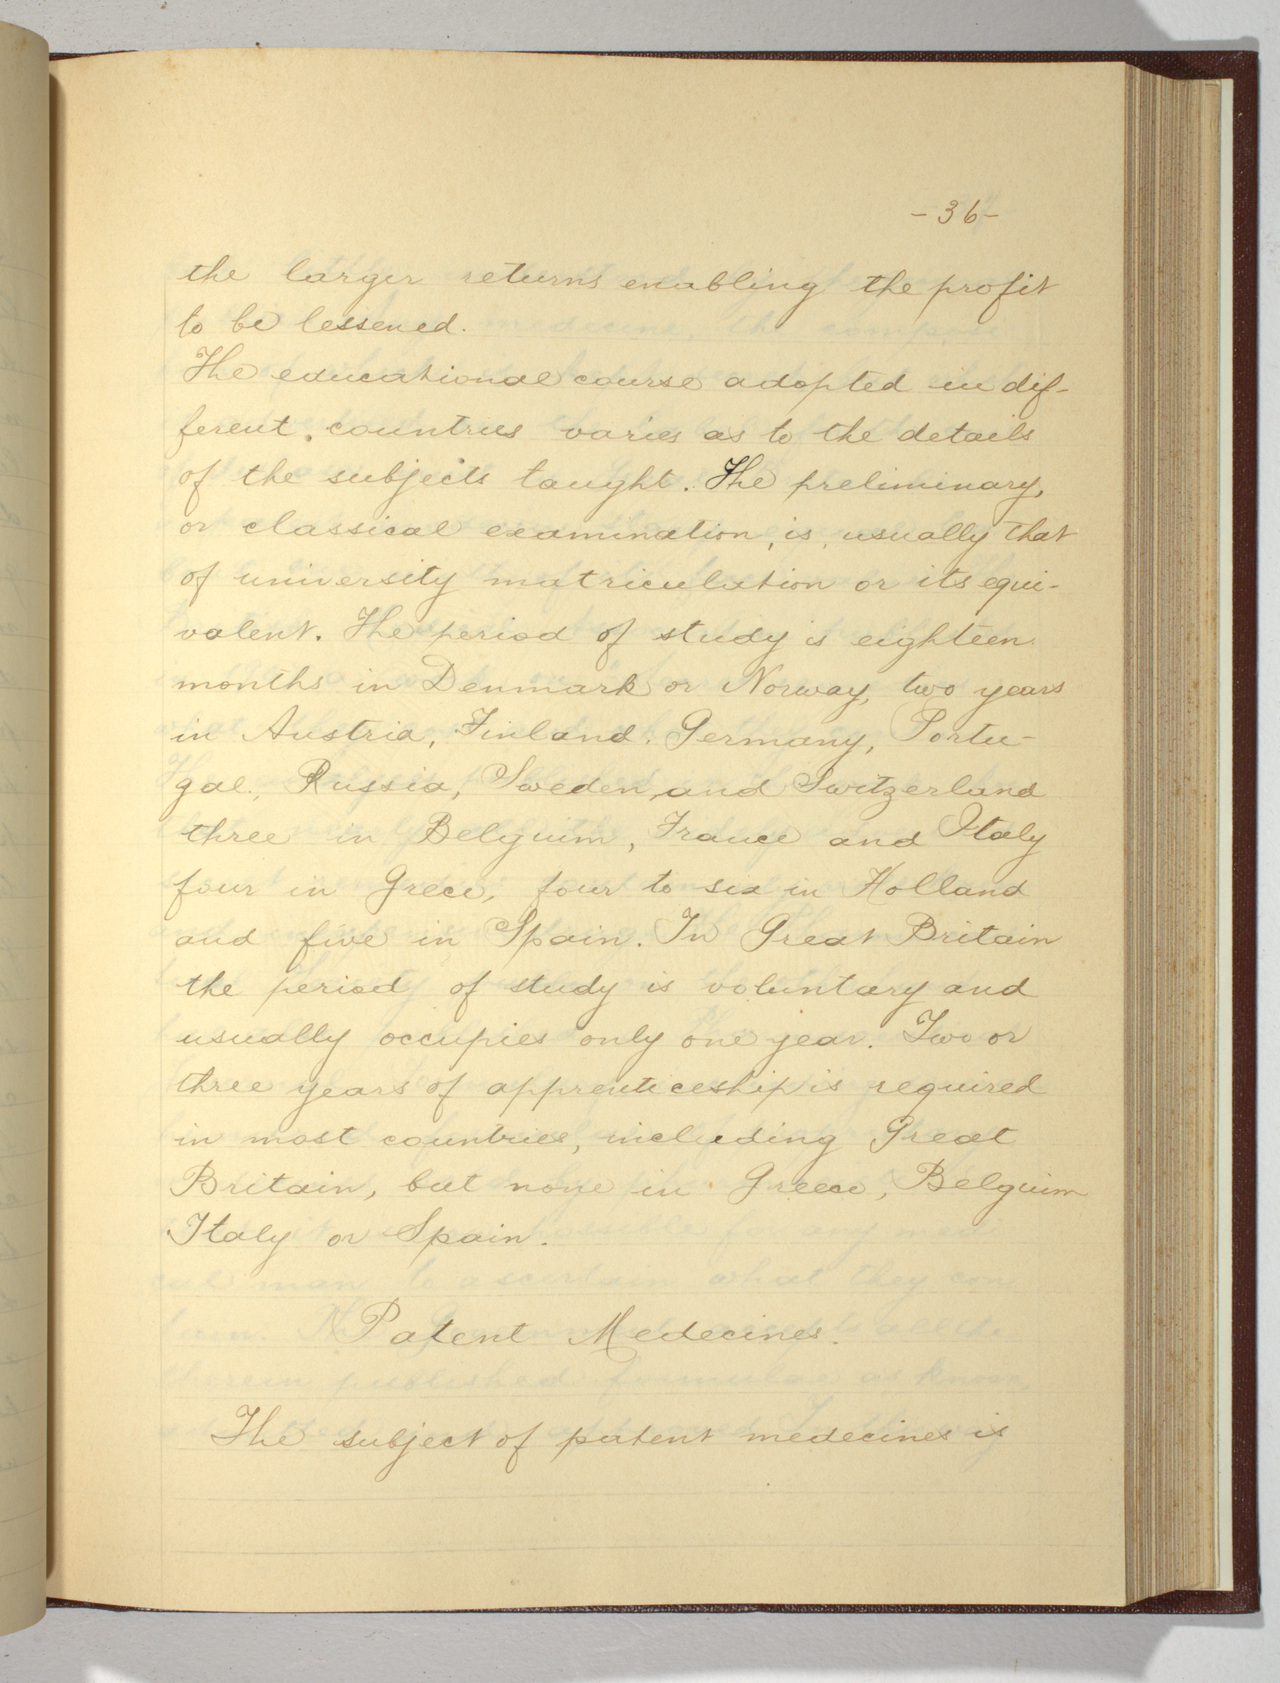 -36-
the larger returns enabling the profit
to be lessened.
The educational course adopted in dif-
ferent countries varies as to the details
of the subjects taught. The preliminary,
or classical examination, is, usually that
of university matriculation or its equi-
valent. The period of study is eighteen
months in Denmark or Norway, two years
in Austria, Finland, Germany, Portu-
gal, Russia, Sweden, and Switzerland
three in Belguim, France and Italy
four in Grece, four to six in Holland
and five in Spain. In Great Britain
the period of study is voluntary and
usually occupies only one year. Two or
three years of apprenticeship is required
in most countries, including Great
Britain, but none in Greece, Belguim
Italy or Spain.
Patent Medecines.
The subject of patent medecines is